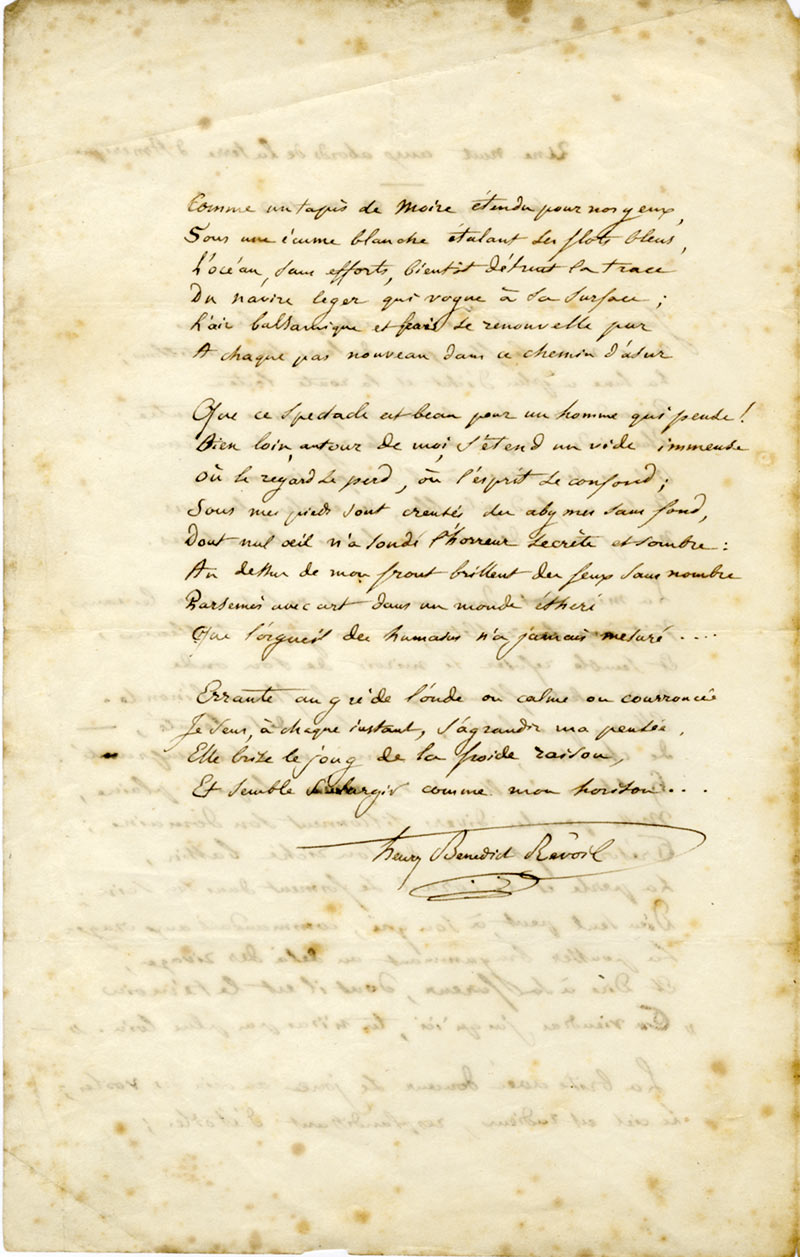 Comme un tapis de Moire étendu pour nos yeux,
Sous une écume blanche étalant ses flots bleus,
L'océan, sans efforts, bientôt détruit la trace
Du navire leger qui vogue à sa surface ;
L'air balsamique et frais se renouvelle pur
A chaque pas nouveau dans ce chemin d'asur
Que ce spectacle est beau pour un homme qui pense !
Bien loin, autour de moi, s'étend un vide immense
Où le regard se perd, où l'esprit se confond ;
Sous mes pieds sont creusés des abymes sans fond,
Dont nul oeil n'a sondé l'horreur secrète et sombre :
Au dessus de mon front brillent des feux sans nombre
Parsemés avec art dans un monde éthéré
Que l'orgueil des humains n'a jamais mesuré ....
Errante au gré de l'onde ou calme ou courroucée
Je sens, à chaque instant, s'agrandir ma pensée,
Elle brise le joug de la froide raison,
Et semble s'élargir comme mon horison ...
Henry Benedict Révoil